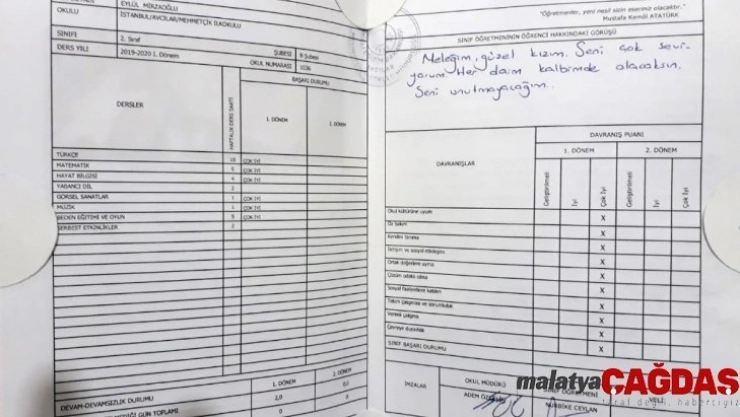 EYLÜL MİRZAOĞLU
OKULU
İSTANBUL/AVCILAR/MEHMETÇİK İLKOKULU
SINIFI
2. Sınıf
ŞUBESİ
B Şubesi
DERS YILI
2019-2020 1. Dönem
OKUL NUMARASI
DERSLER
HAFTALIK DERS SAATİ
BAŞARI DURUMU
1. DÖNEM
2. DÖNEM
TÜRKÇE 10 ÇOK İYİ
MATEMATİK 5 ÇOK İYİ
HAYAT BİLGİSİ 4 ÇOK İYİ
YABANCI DİL 2
GÖRSEL SANATLAR 1 ÇOK İYİ
MÜZİK 1 ÇOK İYİ
BEDEN EĞİTİMİ VE OYUN 5 ÇOK İYİ
SERBEST ETKİNLİKLER 2
1. DÖNEM
2. DÖNEM
DEVAM-DEVAMSIZLIK DURUMU
2,0
0,0
GÜN TOPLAMI
0
0
"Öğretmenler, yeni nesil sizin eseriniz olacaktır."
Mustafa Kemâl ATATÜRK
SINIF ÖĞRETMENİNİN ÖĞRENCİ HAKKINDAKİ GÖRÜŞÜ
Meleğim, güzel kızım. Seni çok sevi-
yorum. Her daim kalbimde olacaksın.
Seni unutmayacağım..
DAVRANIŞLAR
DAVRANIŞ PUANI
1. DÖNEM
2. DÖNEM
Geliştirilmeli
İyi
Çok İyi
Geliştirilmeli
İyi
Çok İyi
Okul kültürüne uyum X
Öz bakım X
Kendini tanıma X
İletişim ve sosyal etkileşim X
Ortak değerlere uyma X
Çözüm odaklı olma X
Sosyal faaliyetlere katılım X
Takım çalışması ve sorumluluk X
Verimli çalışma X
Çevreye duyarlılık X
SINIF BAŞARI DURUMU X
İMZALAR
OKUL MÜDÜRÜ
ADEM
SINIF ÖĞRETMENİ
NURBİKE CEYLAN
VELİ
malatyaÇAĞDAŞ